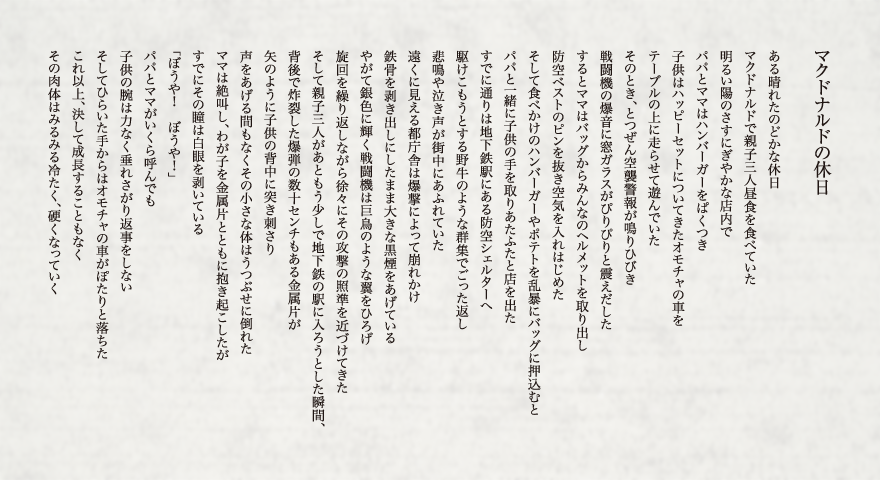 マクドナルドの休日
ある晴れたのどかな休日
マクドナルドで親子三人昼食を食べていた
明るい陽のさすにぎやかな店内で
パパとママはハンバーガーをぱくつき
子供はハッピーセットについてきたオモチャの車を
テーブルの上に走らせて遊んでいた
そのとき、とつぜん空襲警報が鳴りひびき
戦闘機の爆音に窓ガラスがびりびりと震えだした
するとママはバッグからみんなのヘルメットを取り出し
防空ベストのピンを抜き空気を入れはじめた
そして食べかけのハンバーガーやポテトを乱暴にバッグに押込むと
パパと一緒に子供の手を取りあたふたと店を出た
すでに通りは地下鉄駅にある防空シェルターへ
駆けこもうとする野牛のような群集でごった返し
悲鳴や泣き声が街中にあふれていた
遠くに見える都庁舎は爆撃によって崩れかけ
鉄骨を剥き出しにしたまま大きな黒煙をあげている
やがて銀色に輝く戦闘機は巨鳥のような翼をひろげ
旋回を繰り返しながら徐々にその攻撃の照準を近づけてきた
そして親子三人があともう少しで地下鉄の駅に入ろうとした瞬間、
背後で炸裂した爆弾の数十センチもある金属片が
矢のように子供の背中に突き刺さり
声をあげる間もなくその小さな体はうつぶせに倒れた
ママは絶叫し、わが子を金属片とともに抱き起こしたが
すでにその瞳は白眼を剥いている
「ぼうや！　ぼうや！」
パパとママがいくら呼んでも
子供の腕は力なく垂れさがり返事をしない
そしてひらいた手からはオモチャの車がぽたりと落ちた
これ以上、決して成長することもなく
その肉体はみるみる冷たく、硬くなっていく